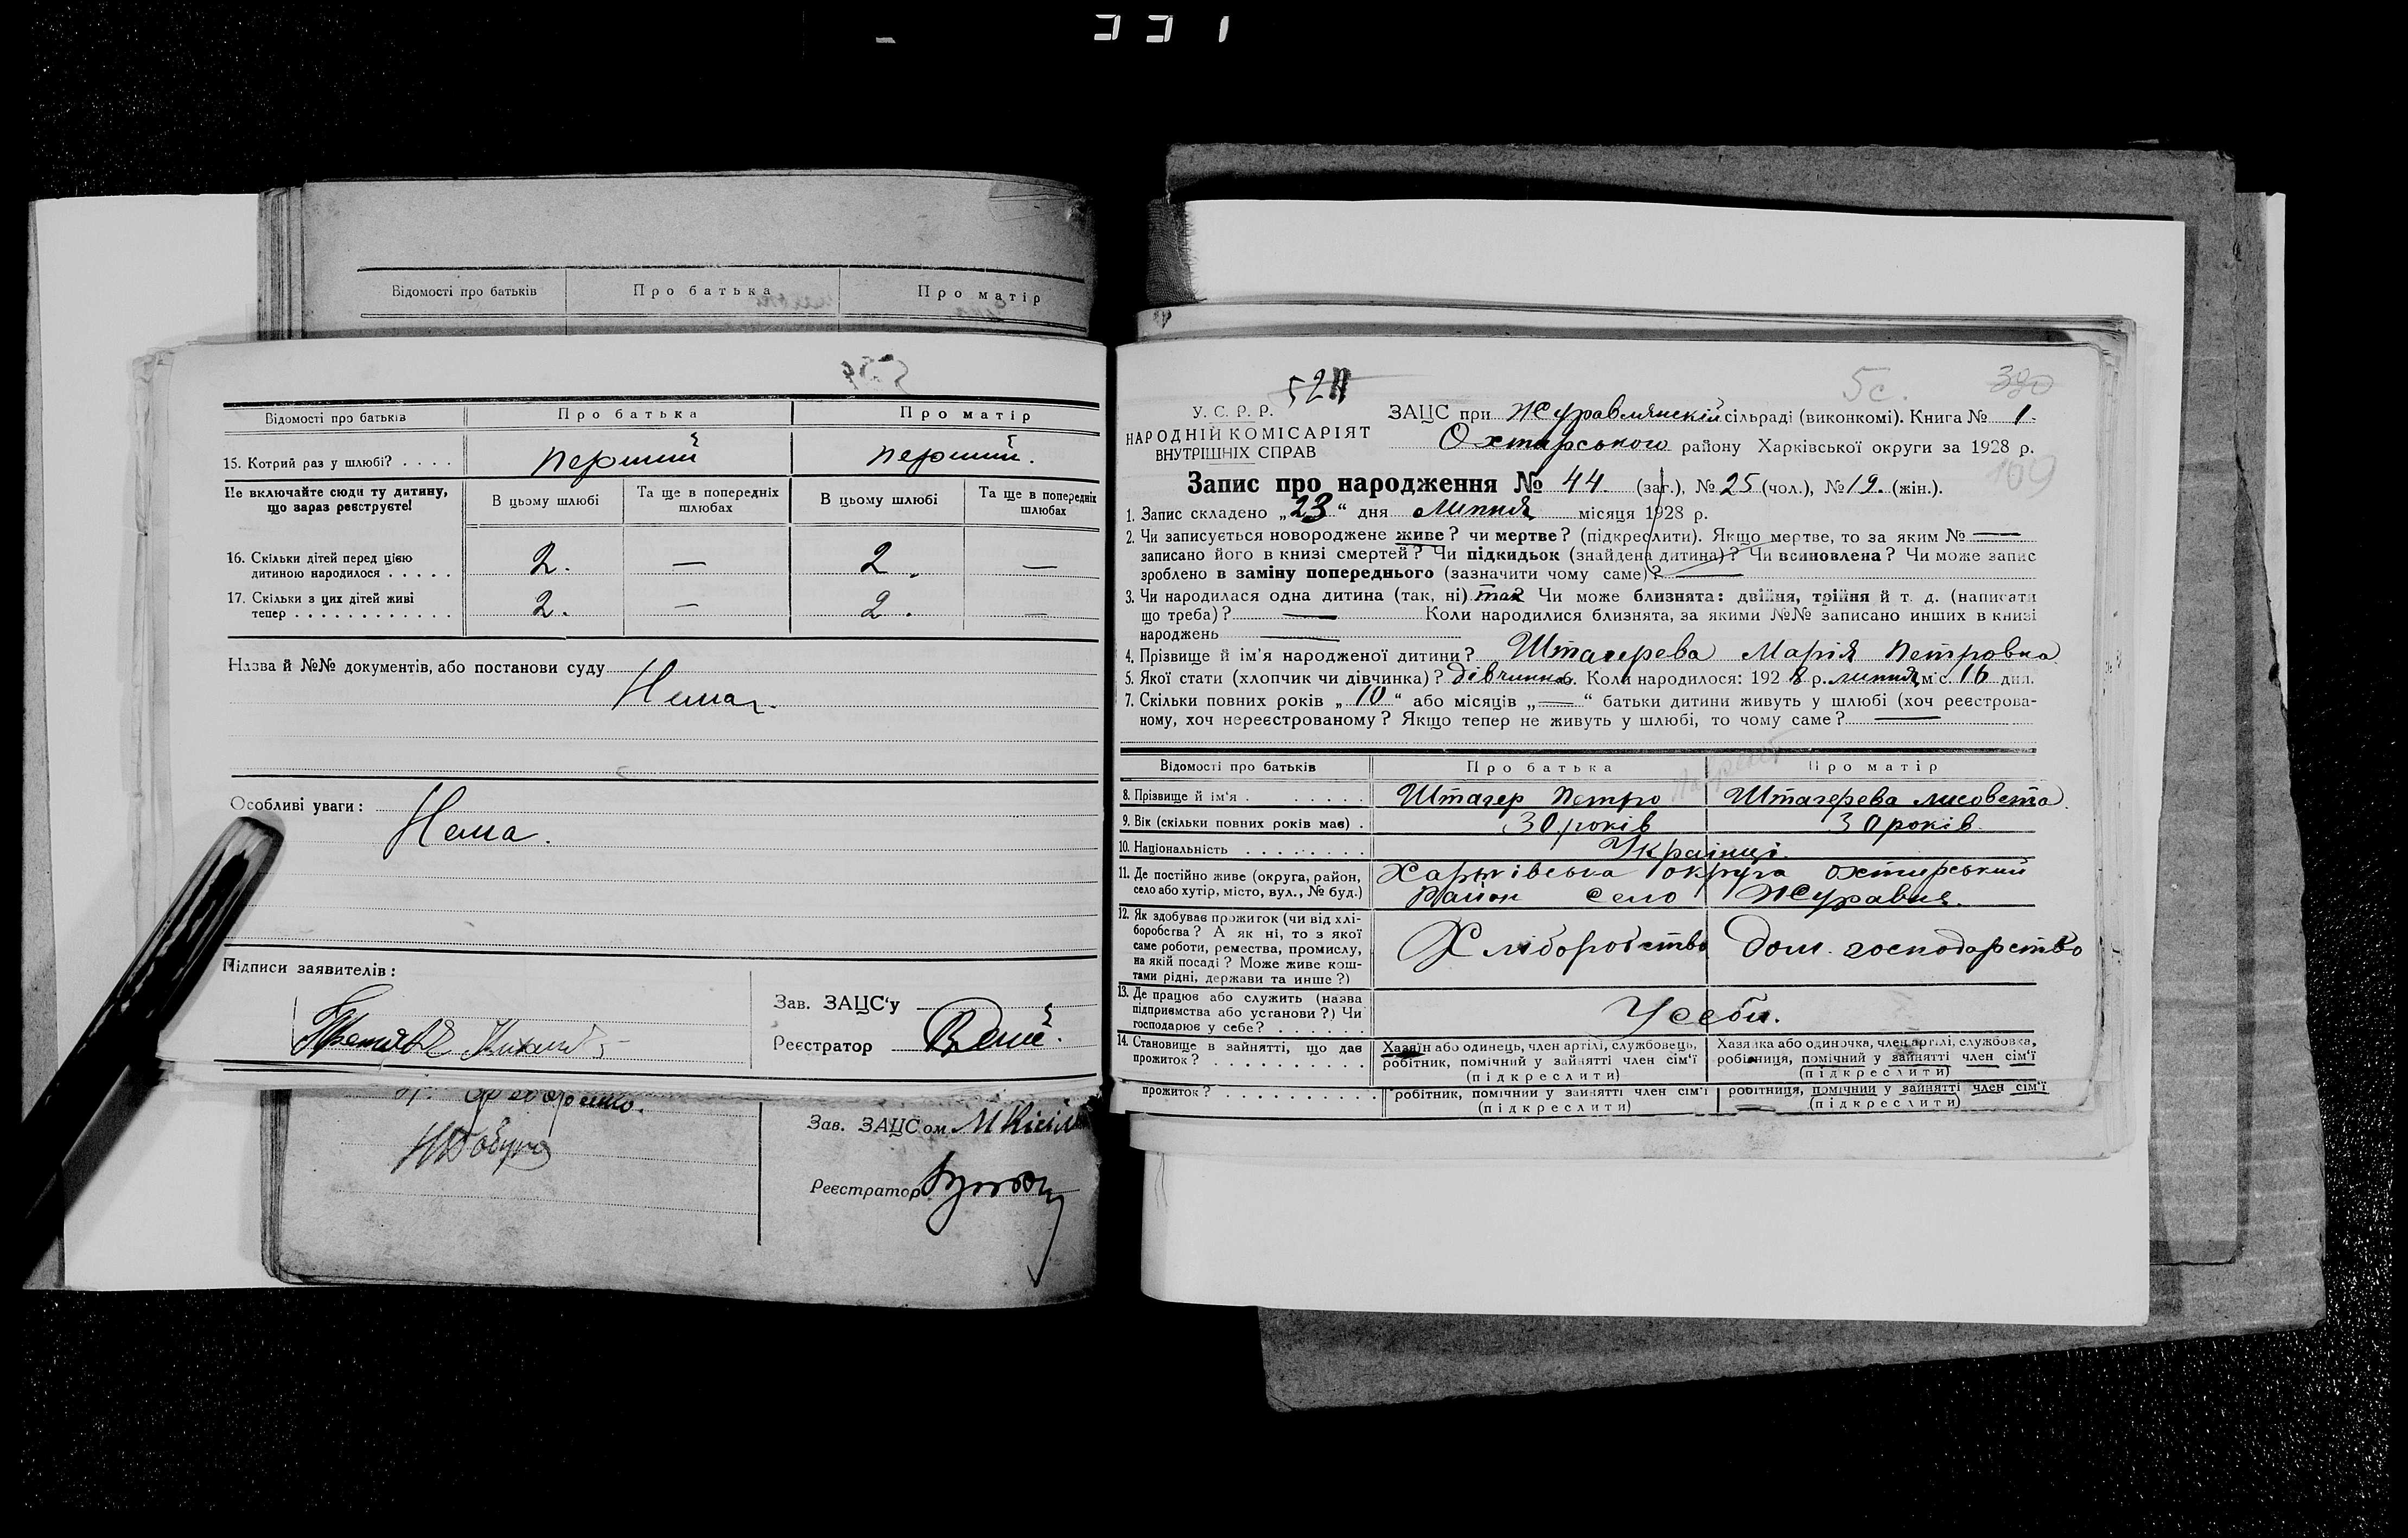 331
Відомості про батьків Про батька Про матір
Відомості про батьків Про батька Про матір
15. Котрий раз у шлюбі? . . . . перший перший.
Не включайте сюди ту дитину, що зараз реєструєте!
В цьому шлюбі Та ще в попередніх шлюбах В цьому шлюбі Та ще в попередніх шлюбах
16. Скільки дітей перед цією
дитиною народилося . . . . . 2. — 2. —
17. Скільки з цих дітей живі
тепер . . . . . . . . . . . . 2. — 2. —
Назва й №№ документів, або постанови суду
Нема.
Особливі уваги:
Нема.
Підписи заявителів:
Зав. ЗАЦС'у
Реєстратор
Зав. ЗАЦСом
Реєстратор
5с. 390
У. С. Р. Р.
НАРОДНІЙ КОМІСАРІЯТ
ВНУТРІШНІХ СПРАВ
ЗАЦС при Журавлянскій сільраді (виконкомі). Книга № 1.
Охтирського району Харківської округи за 1928 р.
109
Запис про народження № 44. (заг.), № 25 (чол.), № 19. (жін.).
1. Запис складено „23“ дня Липня місяця 1928 р.
2. Чи записується новороджене живе? чи мертве? (підкреслити). Якщо мертве, то за яким № —
записано його в книзі смертей? Чи підкидьок (знайдена дитина)? Чи всиновлена? Чи може запис
зроблено в заміну попереднього (зазначити чому саме)? —
3. Чи народилася одна дитина (так, ні) так Чи може близнята: двійня, трійня й т. д. (написати
що треба)? — Коли народилися близнята, за якими №№ записано инших в книзі
народжень —
4. Прізвище й ім'я народженої дитини? Штагерева Марія Петровна
5. Якої стати (хлопчик чи дівчинка)? дівчинка. Коли народилося: 1928 р. липня м-с. 16 дня.
7. Скільки повних років „10“ або місяців „—“ батьки дитини живуть у шлюбі (хоч реєстрова-
ному, хоч нереєстрованому? Якщо тепер не живуть у шлюбі, то чому саме? —
Відомості про батьків Про батька Про матір
8. Прізвище й ім'я . . . . . . Штагер Петро Штагерева лисовета.
9. Вік (скільки повних років має) . 30 років 30 років.
10. Національність . . . . . . . . Українці.
11. Де постійно живе (округа, район,
село або хутір, місто, вул., № буд.)
Харьківська округа охтирський
Район село Журавне.
12. Як здобуває прожиток (чи від хлі-
боробства? А як ні, то з якої
саме роботи, ремества, промислу,
на якій посаді? Може живе кош-
тами рідні, держави та инше?)
Хліборобство Дом. господарство
13. Де працює або служить (назва
підприємства або установи?) Чи
господарює у себе? . . . . . .
Усебы.
14. Становище в зайнятті, що дає
прожиток? . . . . . . . . . .
Хазяїн або одинець, член артілі, службовець,
робітник, помічний у зайнятті член сім'ї
(підкреслити)
Хазяйка або одиночка, член артілі, службовка,
робітниця, помічний у зайнятті член сім'ї
(підкреслити)
прожиток? . . . . . . . . . .
робітник, помічний у зайнятті член сім'ї
(підкреслити)
робітниця, помічний у зайнятті член сім'ї
(підкреслити)